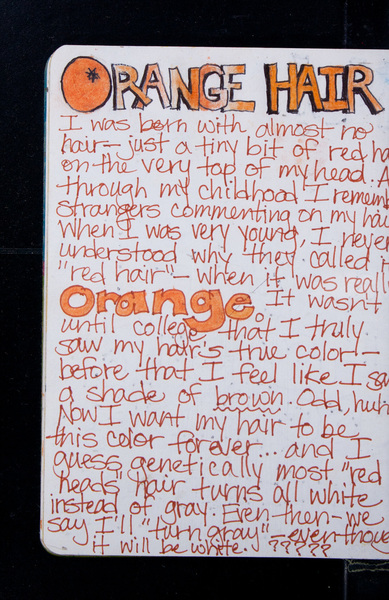 ORANGE HAIR
I was born with almost no
hair— just a tiny bit of red ha
on the very top of my head. A
through my childhood I remem
strangers commenting on my hai
When I was very young, I never
understood why they called i
"red hair"— when it was reall
Orange. It wasn't
until college that I truly
saw my hair's true color—
before that I feel like I sa
a shade of brown. Odd, huh
Now I want my hair to be
this color forever... and I
guess genetically most "red
heads" hair turns all white
instead of gray. Even then— we
say I'll "turn gray"— even thou
it will be white. ?????